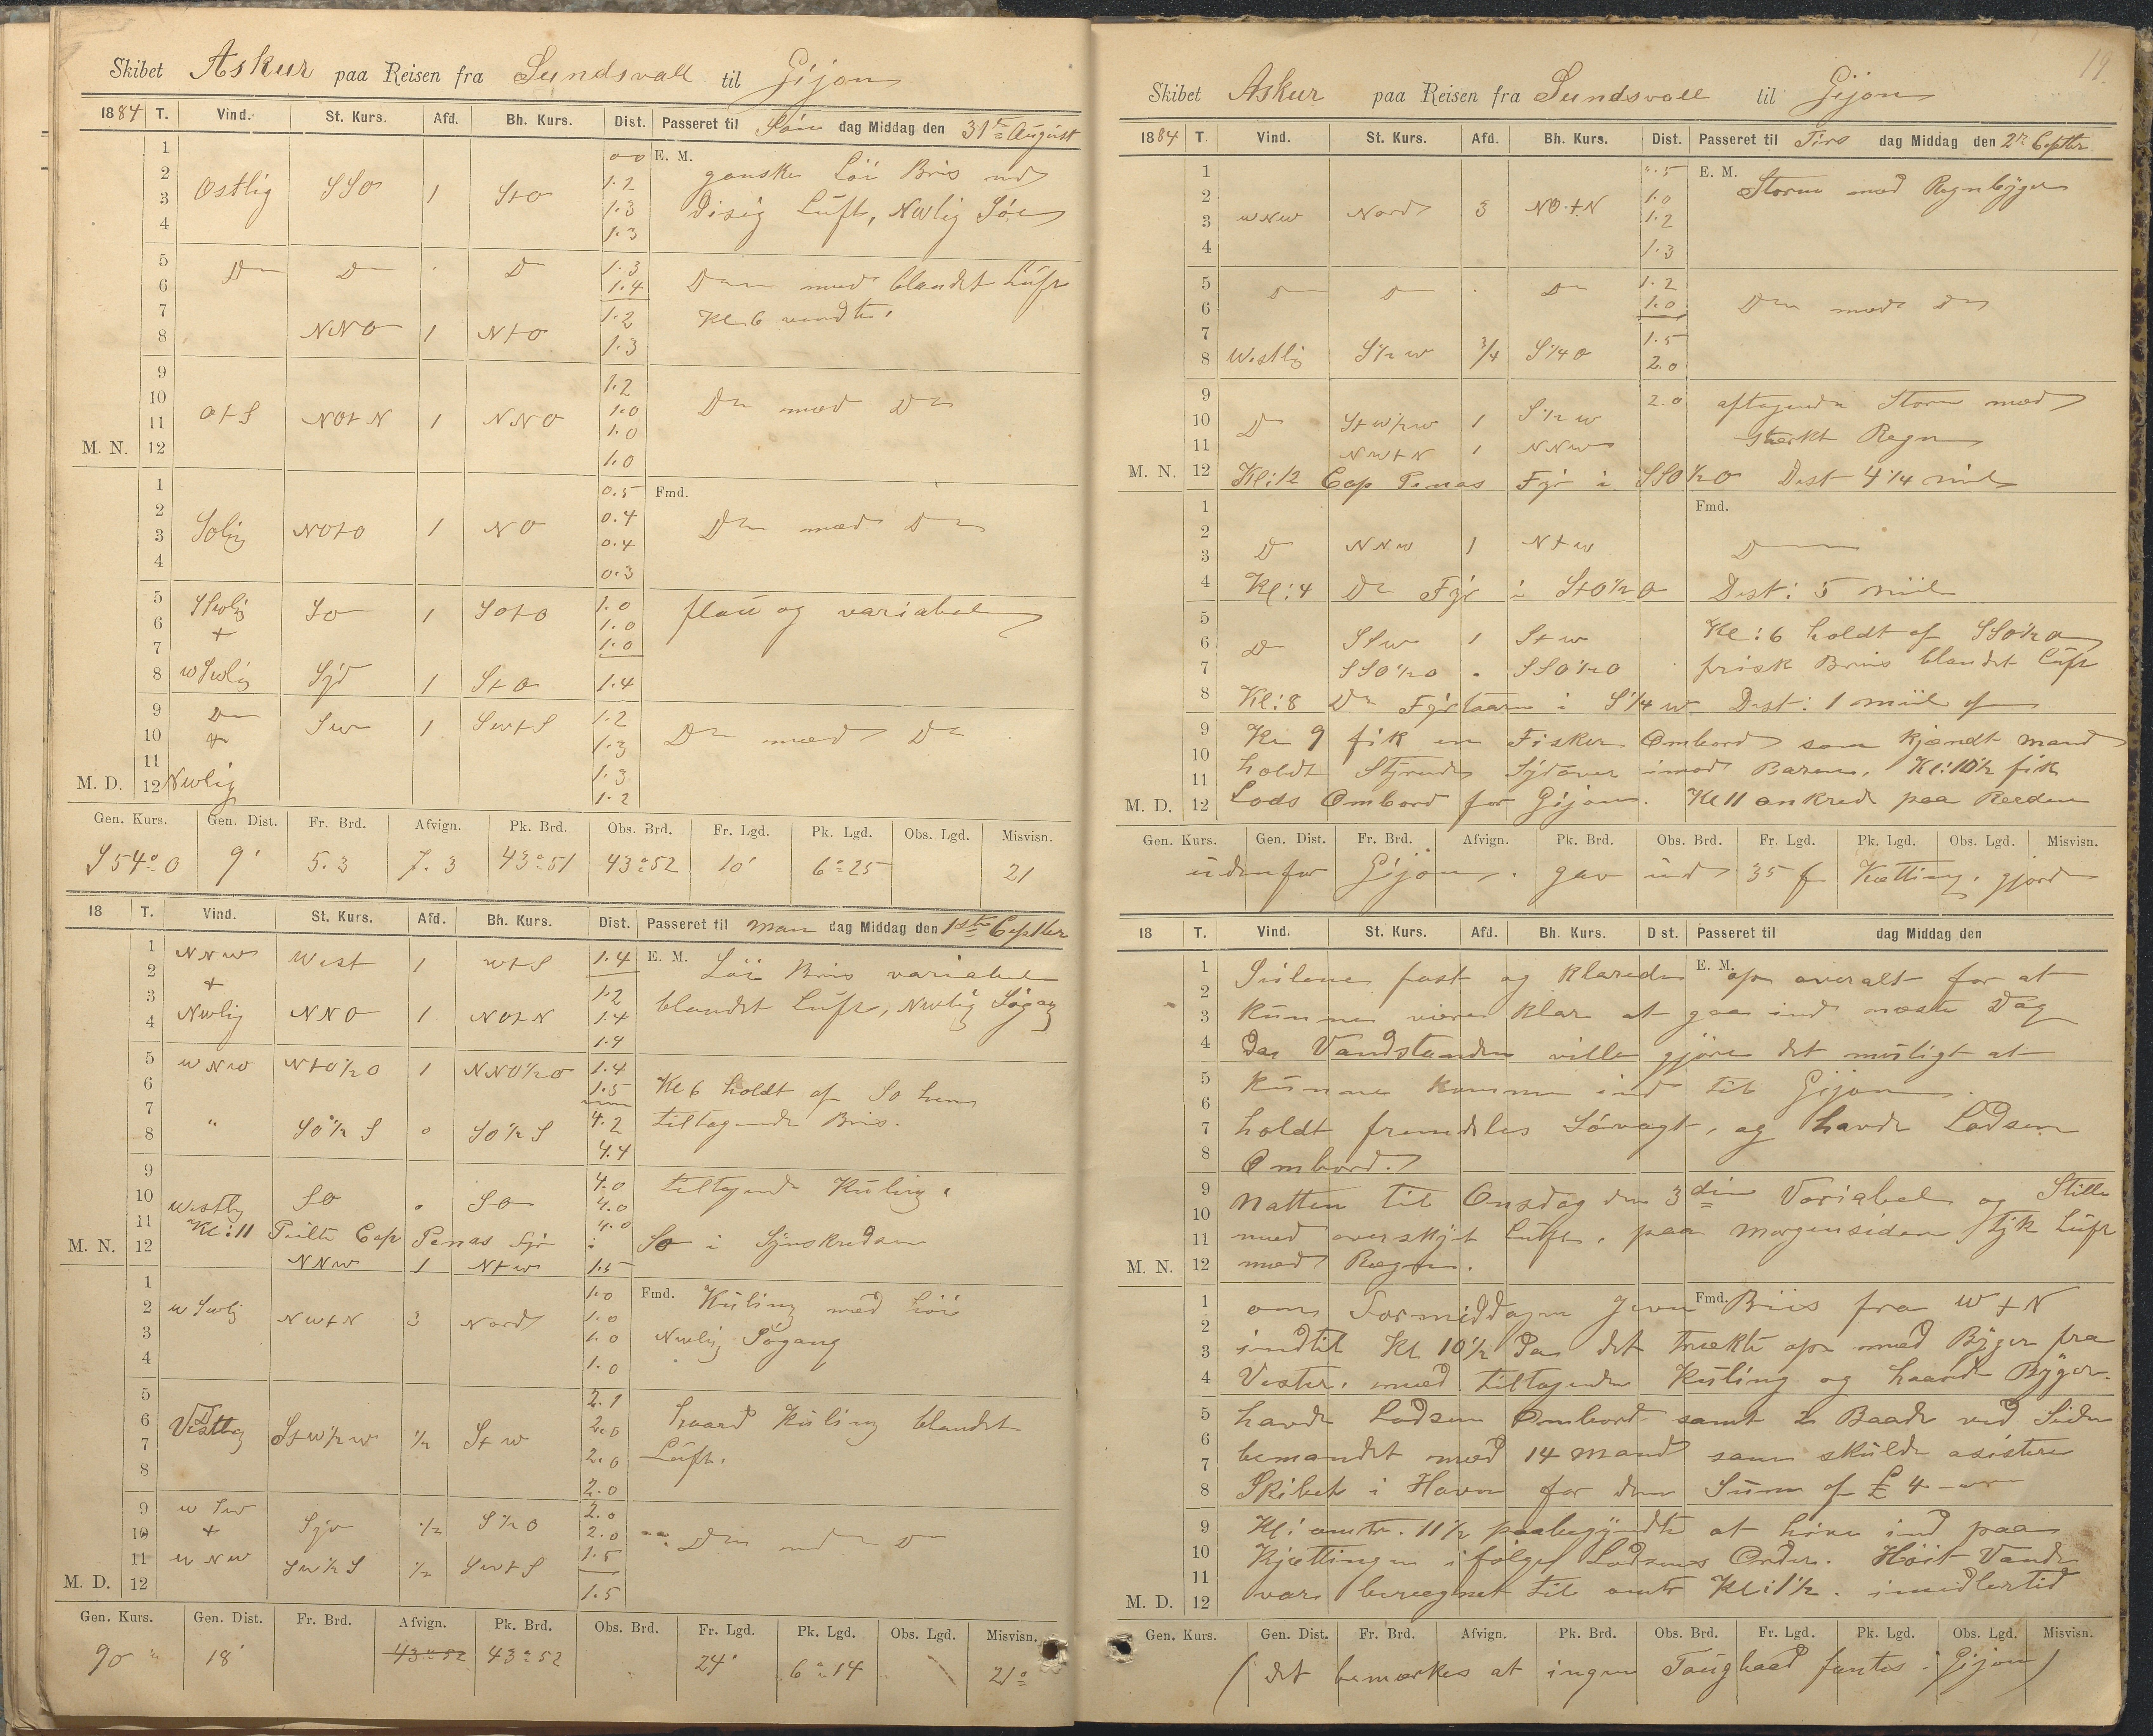 Skibet Askur paa Reisen fra Sundsvall til Gijon
1884 T. Vind. St. Kurs. Afd. Bh. Kurs. Dist. Passeret til Søn dag Middag den 31te August
1 0-0 E. M.
2 Ostlig SSO 1 StO 1.2 ganske Löi Bris med
3 1.3 Disig Luft, NWlig Söe
4 1.3
5 Do Do . Do 1.3 Do med blandet Luft
6 1.4
7 1.2 Kl 6 vendte.
8 NNO 1 NtO 1.3
9 1.2
10 OtS NOtN 1 NNO 1.0 Do med Do
11 1.0
M. N. 12 1.0
1 0.5 Fmd.
2 Solig NOtO 1 NO 0.4 Do med Do
3 0.4
4 0.3
5 SSWlig SO 1 SOtO 1.0 flau og variabel
6 + 1.0
7 1.0
8 WSWlig Syd 1 StO 1.4
9 Do SW 1 SWtS 1.2
10 + 1.3 Do med Do
11 1.3
M. D. 12 NWlig 1.2
Gen. Kurs. Gen. Dist. Fr. Brd. Afvign. Pk. Brd. Obs. Brd. Fr. Lgd. Pk. Lgd. Obs. Lgd. Misvisn.
S 54° O 9' 5.3 7.3 43°51 43°52 10' 6°25 21
18 T. Vind. St. Kurs. Afd. Bh. Kurs. Dist. Passeret til Man dag Middag den 1ste Septber
1 NNW West 1 WtS 1.4 E. M. Löi Bris variabel
2 + 1.2
3 NWlig NNO 1 NOtN 1.4 blandet Luft, NWlig Søgang
4 1.4
5 WNW NtO½O 1 NNO½O 1.4
6 1.5 Kl 6 holdt af SO hen
7 " SO½S 0 SO½S 4.2 tiltagende Bris.
8 4.4
9 4.0
10 Westlig SO 0 SO 4.0 tiltagende Kuling.
11 Kl: 11 Peilte Cap Penas Fyr i 4.0 SO i Synskredsen
M. N. 12 NNW 1 NtW 1.5
1 1.0 Fmd. Kuling med Löi
2 WSWlig NWtN 3 Nord 1.0
3 1.0 NWlig Søgang
4 1.0
5 2.1
6 Vestlig StW½W ½ StW 2.0 haard Kuling blandet
7 2.0 Luft.
8 2.0
9 WSW 2.0
10 + Syd ½ S½O 2.0 Do med Do
11 WNW SW½S ½ SWtS 1.5
M. D. 12 1.5
Gen. Kurs. Gen. Dist. Fr. Brd. Afvign. Pk. Brd. Obs. Brd. Fr. Lgd. Pk. Lgd. Obs. Lgd. Misvisn.
90 " 18' 43°52 43°52 24' 6°14 21°
19.
Skibet Askur paa Reisen fra Sundsvall til Gijon
1884 T. Vind. St. Kurs. Afd. Bh. Kurs. Dist. Passeret til Tirs dag Middag den 2n Septber
1 ".5 E. M. Storm med Regnbyger
2 1.0
3 WNW Nord 3 NOtN 1.2
4 1.3
5 Do Do . Do 1.2
6 1.0 Do med Do
7 1.5
8 Westlig S½W ¾ S¼O 2.0
9 2.0 aftagende Storm med
10 Do StW½W 1 S½W
11 NWtN 1 NNW stærkt Regn
M. N. 12 Kl: 12 Cap Penas Fyr i SSO½O Dist 4¼ miil
1 Fmd.
2
3 Do NNW 1 NtW Do
4 Kl: 4 Do Fyr i StO½O Dist: 5 miil
5 Kl: 6 holdt af SSO½O
6 Do SSW 1 StW
7 SSO½O . SSO½O frisk Briis blandet Luft
8 Kl: 8 Do Fyrtaarn i S¼W Dist: 1 miil af
9 Kl 9 fik en Fisker Ombord som kjendt mand
10 holdt Styrende Sydover imod Baren. Kl: 10½ fik
11 Lods Ombord for Gijon. Kl 11 ankred paa Reeden
M. D. 12
Gen. Kurs. Gen. Dist. Fr. Brd. Afvign. Pk. Brd. Obs. Brd. Fr. Lgd. Pk. Lgd. Obs. Lgd. Misvisn.
udenfor Gijon. gav ud 35 f Kætting. gjorde
18 T. Vind. St. Kurs. Afd. Bh. Kurs. D st. Passeret til dag Middag den
1 Seilene fast og klarede E. M. op overalt for at
2
3 kunne være klar at gaa ind næste Dag
4 Da Vandstanden ville gjöre det muligt at
5 kunne komme ind til Gijon.
6
7 holdt fremdeles Søvagt, og havde Lodsen
8 Ombord.
9 Natten til Onsdag den 3die Variabel og Stille
10
11 med overskyt Luft, paa morgensiden tyk Luft
M. N. 12 med Regn.
1 om Formiddagen jevn Fmd. Briis fra WtN
2
3 indtil Kl 10½ Da det trækte op med Byger fra
4 Vester, med tiltagende Kuling og haarde Byger.
5 havde Lodsen Ombord samt 2 Baade ved Siden
6
7 bemandet med 14 mand som skulde asistere
8 Skibet i Havn for den Sum af £ 4 -
9 Kl: omtr. 11½ paabegyndte at hive ind paa
10 Kjættingen ifølge Lodsens Order. Höit Vande
11
M. D. 12 var beregnet til omtr Kl: 1½. imidlertid
Gen. Kurs. Gen. Dist. Fr. Brd. Afvign. Pk. Brd. Obs. Brd. Fr. Lgd. Pk. Lgd. Obs. Lgd. Misvisn.
( det bemærkes at ingen Taugbaad fantes i Gijon )